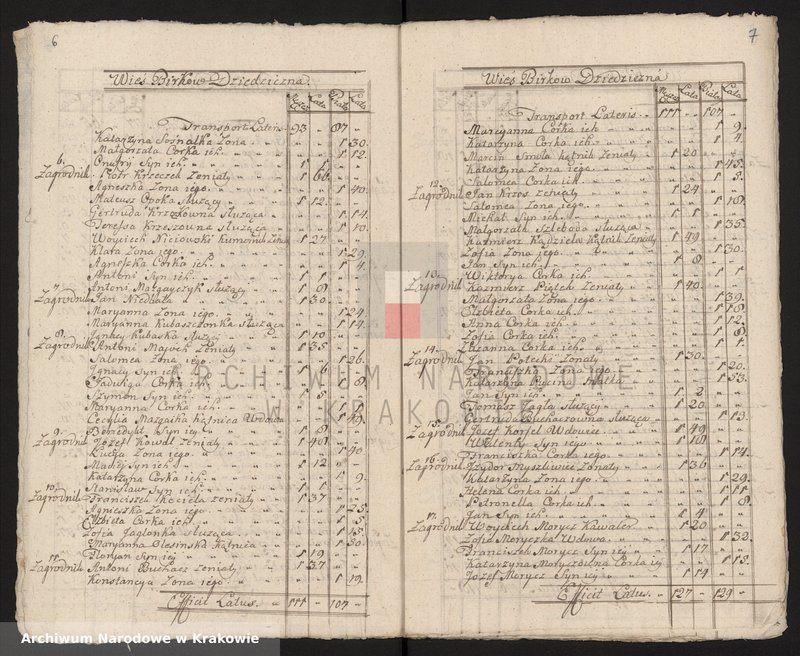 6
Wieś Birkow Dziedziczna.
Męska Lata Białog. Lata
Transport Lateris 93 „ 87 „
Katarzyna Sośnalka Zona 1 30
Małgorzata Corka ich 1 12
6. Onufry Syn ich 1 1
Zagrodnik Piotr Krzeczek Zeniaty 1 66
Agneszka Zona iego 1 40
Mateusz Opoka służący 1 12
Gertruda służąca 1 14
Teressa Krzeszowna służąca 1 10
Woyciech Niciowski kumornik Zeniaty 1 27
Klara Zona iego 1 29
Agnieszka Corka ich 1 4
Antoni Syn ich 1 1
7. Antoni Małgayczyk służący 1 8
Zagrodnik Jan Niedbała 1 30
Maryanna Zona iego 1 24
Maryanna Kubaszczonka służąca 1 14
8. Jgnacy Kubaska służący 1 10
Zagrodnik Antoni Zeniaty 1 35
Salomea Zona iego 1 26
Jgnacy Syn ich 1 6
Jadwiga Corka ich 1 8
Szymon Syn ich 1 5
Maryanna Corka ich 1 1
Cecylia kątnica Wdowa 1 49
9. Benedykt Syn iey 1 8
Zagrodnik Jozef Kowal Zeniaty 1 48
Łucya Zona iego 1 40
Maciey Syn ich 1 12
Katarzyna Corka ich 1 9
10. Stanisław Syn ich 1 1
Zagrodnik Franciszek Zeniaty 1 37
Agnieszka Zona iego 1 25
Elżbieta Corka ich 1 5
Zofia Jagłonka służąca 1 45
Maryanna Olesinska kątnica 1 50
11. Floryan Syn iey 1 19
Zagrodnik Antoni Buchacz Zeniaty 1 37
Konstancya Zona iego 1 19
Efficit Latus. 111 „ 107 „
7
Wieś Birkow Dziedziczna
Męska Lata Białog. Lata
Transport Lateris 111 „ 107 „
Marcyanna Corka ich 1 9
Katarzyna Corka ich 1 4
Marcin Smoła kątnik Zeniaty 1 20
Katarzyna Zona iego 1 45
12. Salomea Corka ich 1 3
Zagrodnik Jan Krzos Zeniaty 1 24
Salomea Zona iego 1 18
Michał Syn ich 1 1
Małgorzata Szleboda służąca 1 35
Kazimierz Kądziela kątnik Zeniaty 1 49
Zofia Zona iego 1 30
Jan Syn ich 1 8
13. Wiktorya Corka ich 1 1
Zagrodnik Kazimierz Piątek Zeniaty 1 40
Małgorzata Zona iego 1 39
Elżbieta Corka ich 1 18
Anna Corka ich 1 12
Zofia Corka ich 1 8
14. Zuzanna Corka ich 1 1
Zagrodnik Jan Zonaty 1 30
Franciszka Zona iego 1 20
Katarzyna Matka 1 53
Jan Syn ich 1 2
Tomasz Jagła służący 1 20
15. Gertruda Buchaczowna służąca 1 13
Zagrodnik Jozef Korfel Wdowiec 1 49
Walenty Syn iego 1 18
16. Franciszka Corka iego 1 14
Zagrodnik Jzydor Myszliwiec Zonaty 1 36
Katarzyna Zona iego 1 29
Helena Corka ich 1 11
Petronella Corka ich 1 8
17. Jan Syn ich 1 4
Zagrodnik Woyciech Morycz Kawaler 1 20
Zofia Moryczka Wdowa 1 32
Franciszek Morycz Syn iey 1 17
Katarzyna Moryczowna Corka iey 1 13
Jozef Morycz Syn iey 1 14
Efficit Latus. 127 „ 129 „
ARCHIWUM NARODOWE
W KRAKOWIE
Archiwum Narodowe w Krakowie